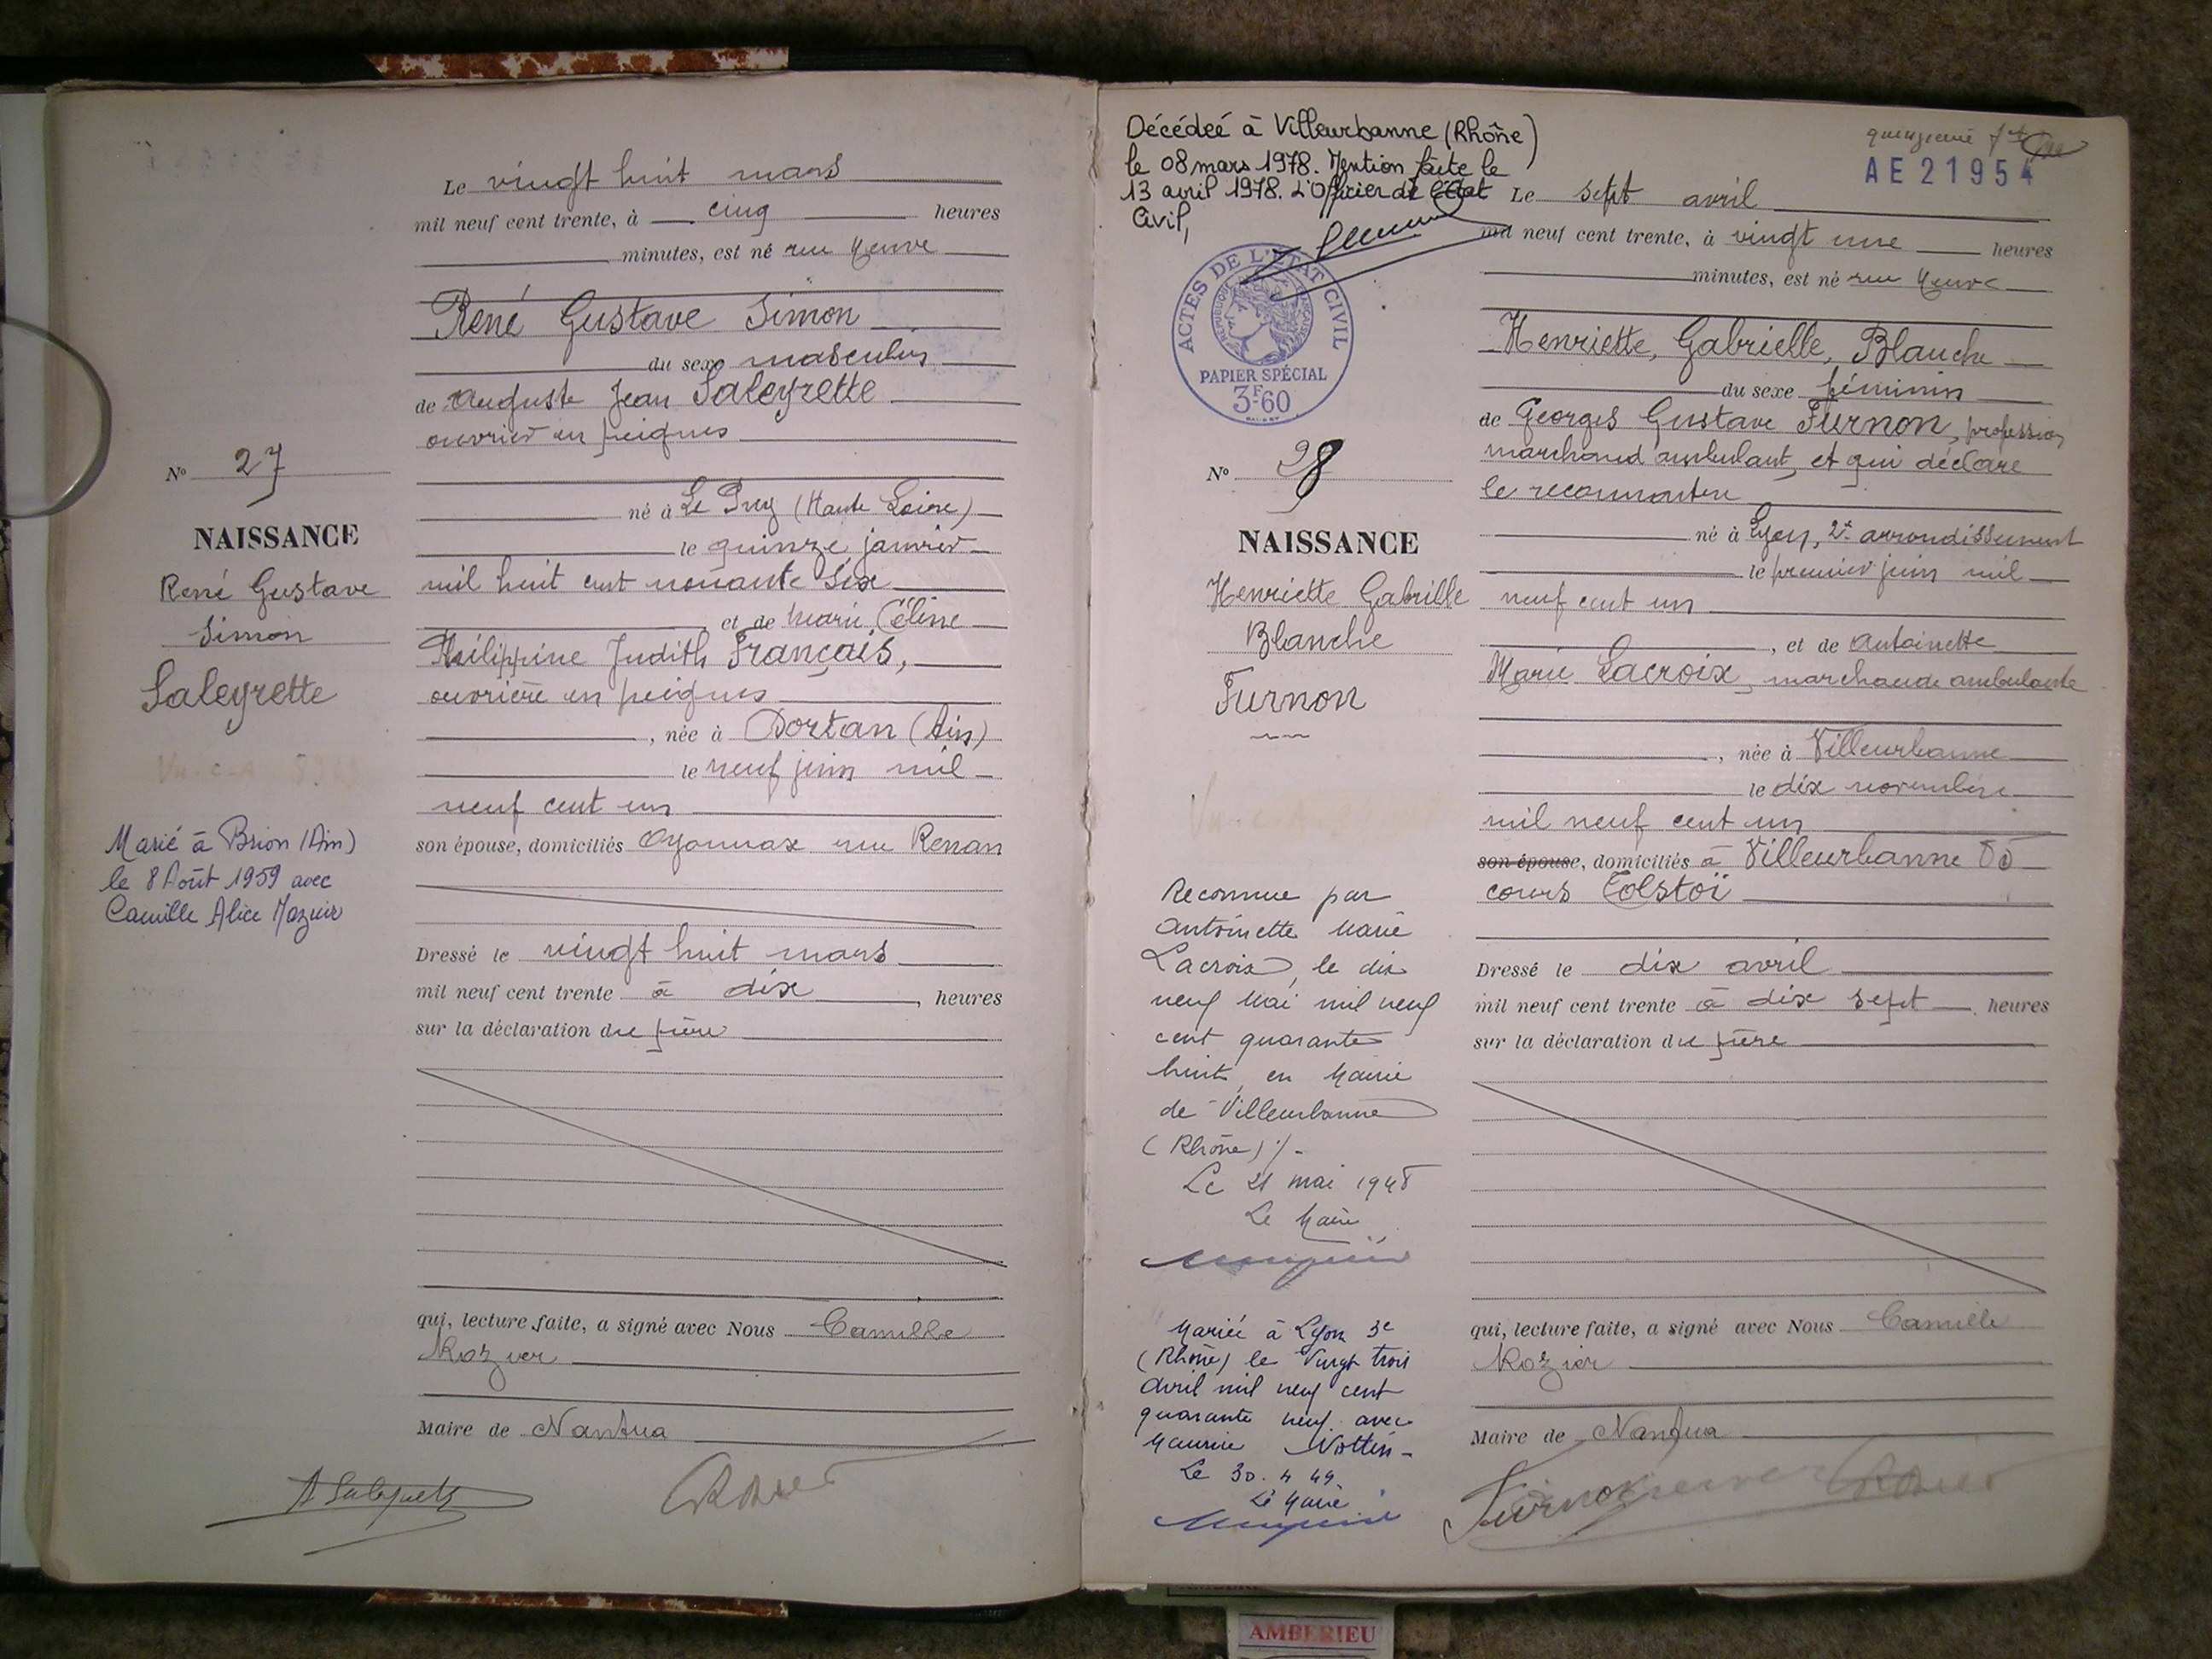 Le vingt huit mars
mil neuf cent trente, à cinq heures
minutes, est né rue Neuve
René Gustave Simon
du sexe masculin
de Auguste Jean Saleyrette
ouvrier en peignes
né à Le Puy (Haute Loire)
le quinze janvier
mil huit cent nonante six
et de Marie Céline
Philippine Judith Français,
ouvrière en peignes
, née à Dortan (Ain)
le neuf juin mil
neuf cent un
son épouse, domiciliés Oyonnax rue Renan
Dressé le vingt huit mars
mil neuf cent trente à dix, heures
sur la déclaration du père
qui, lecture faite, a signé avec Nous Camille
Rozier
Maire de Nantua
A Saleyrette
N° 27
NAISSANCE
René Gustave
Simon
Saleyrette
Marié à Brion (Ain)
le 8 Août 1959 avec
Camille Alice
Décédée à Villeurbanne (Rhône)
le 08 mars 1978. Mention faite le
13 avril 1978. L'Officier de l'état
Civil,
ACTES DE L'ÉTAT CIVIL
RÉPUBLIQUE FRANÇAISE
PAPIER SPÉCIAL
3F60
N° 28
NAISSANCE
Henriette Gabrielle
Blanche
Furnon
Reconnue par
Antoinette Marie
Lacroix, le dix
neuf Mai mil neuf
cent quarante
huit, en Mairie
de Villeurbanne
(Rhône) ./-
Le 21 mai 1948
Le Maire
Mariée à Lyon 3e
(Rhône) le Vingt trois
Avril mil neuf cent
quarante neuf avec
Maurice Nottin -
Le 30. 4 49
Le Maire
AE 21954
Le sept avril
mil neuf cent trente, à vingt une heures
minutes, est né rue Neuve
Henriette, Gabrielle, Blanche
du sexe féminin
de Georges Gustave Furnon, profession
marchand ambulant, et qui déclare
le reconnaître
né à Lyon, 2e arrondissement
le premier juin mil
neuf cent un
, et de Antoinette
Marie Lacroix, marchande ambulante
, née à Villeurbanne
le dix novembre
mil neuf cent un
son épouse, domiciliés à Villeurbanne
cours Tolstoï
Dressé le dix avril
mil neuf cent trente à dix sept heures
sur la déclaration du père
qui, lecture faite, a signé avec Nous Camille
Rozier
Maire de Nantua
Furnon
AMBERIEU